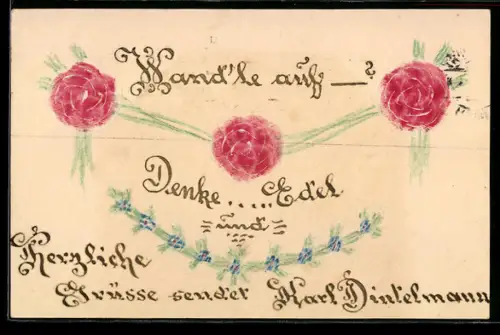 Wand'le auf —?
Denke.....Edel
und
Herzliche
Grüsse sendet Karl Dintelmann